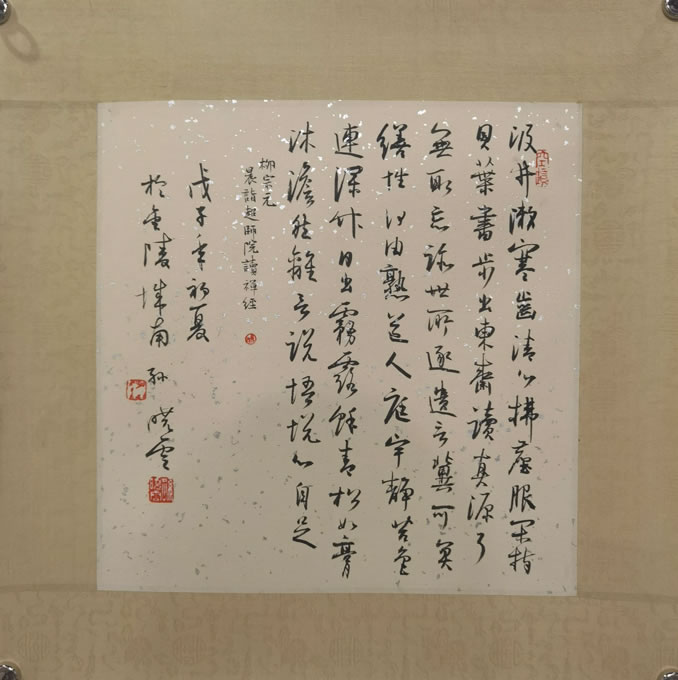 汲井漱寒齒清心拂塵服閑持
貝葉書步出東齋讀真源了
無取忘跡世所逐遺言冀可冥
繕性何由熟道人庭宇靜苔色
連深竹日出霧露餘青松如膏
沐澹然離言說悟悅心自足
柳宗元
晨詣超師院讀禪經
戊子年初夏
於金陵城南 孫曉雲